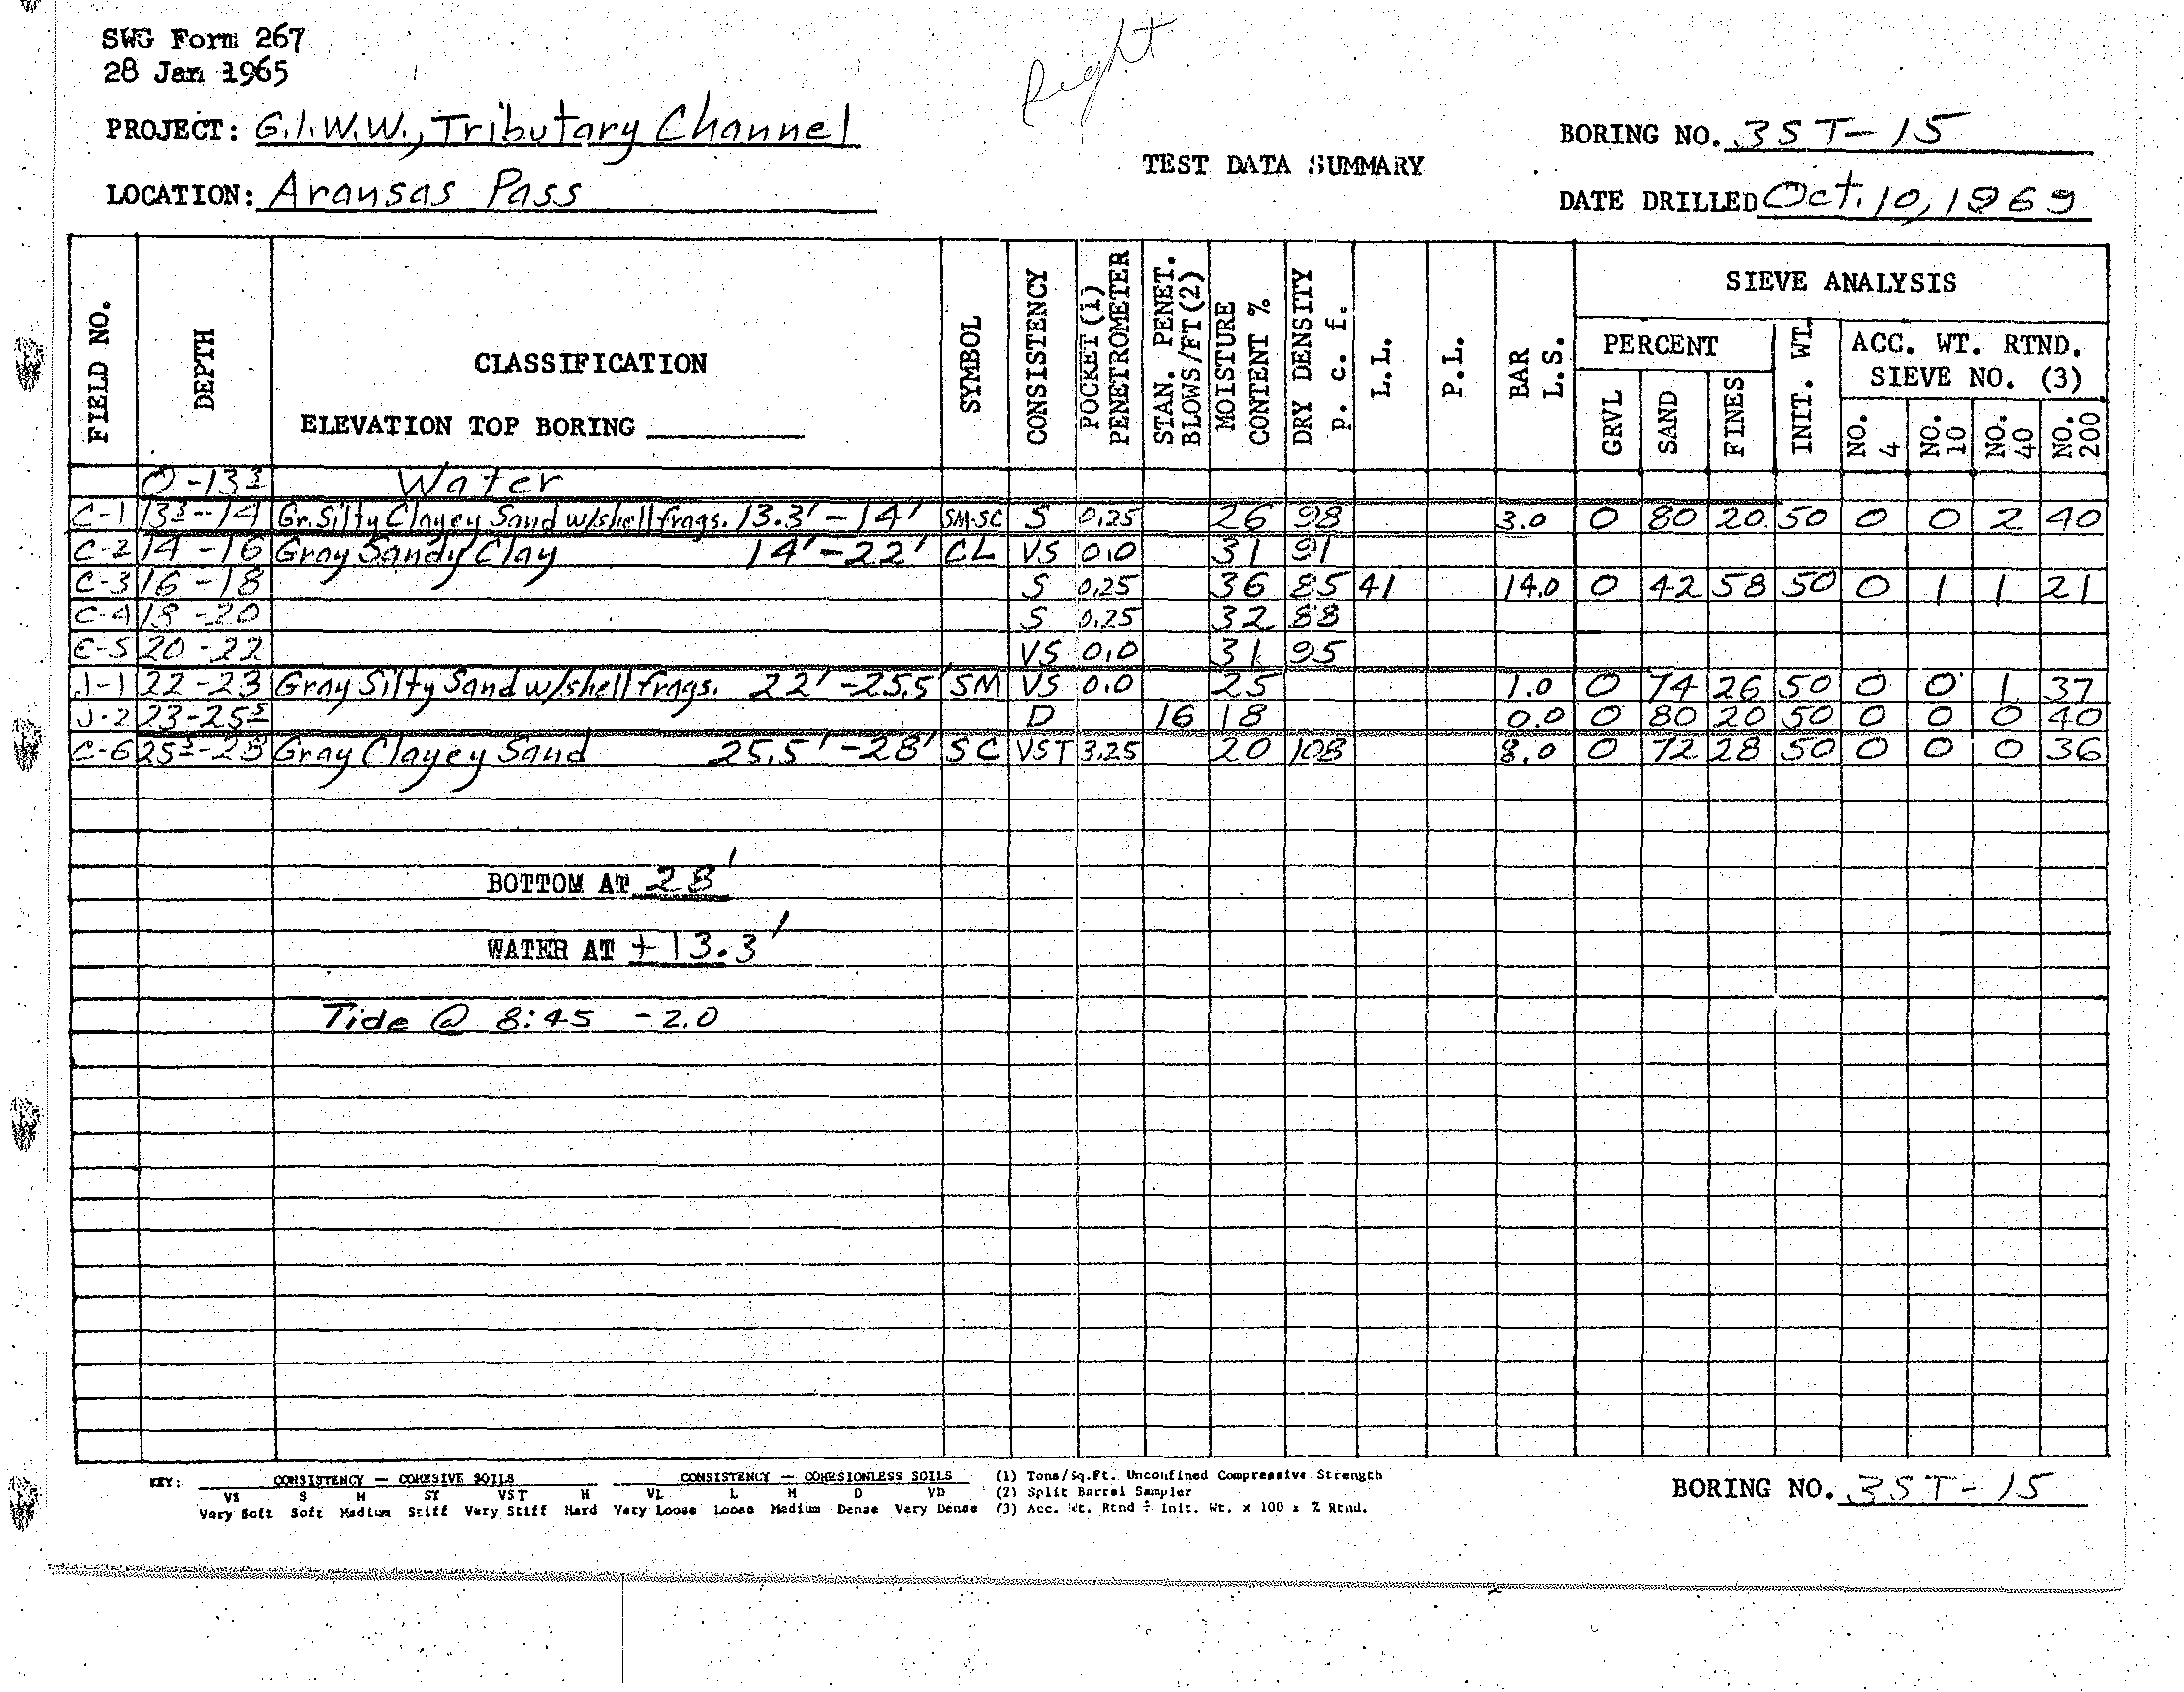 SWG Form 267
28 Jan 1965
Right
PROJECT: G.I.W.W., Tributary Channel
BORING NO. 3ST-15
TEST DATA SUMMARY
LOCATION: Aransas Pass
DATE DRILLED Oct. 10, 1969
FIELD NO. DEPTH CLASSIFICATION SYMBOL CONSISTENCY POCKET (1) PENETROMETER STAN. PENET. BLOWS/FT (2) MOISTURE CONTENT % DRY DENSITY p. c. f. L.L. P.L. BAR L.S. SIEVE ANALYSIS
PERCENT INIT. WT. ACC. WT. RTND. SIEVE NO. (3)
ELEVATION TOP BORING
GRVL SAND FINES NO. 4 NO. 10 NO. 40 NO. 200
0-13.3 Water
C-1 13.3-14 Gr. Silty Clayey Sand w/shell frags. 13.3'-14' SM-SC S 0.25 26 98 3.0 0 80 20 50 0 0 2 40
C-2 14-16 Gray Sandy Clay 14'-22' CL VS 0.0 31 91
C-3 16-18 S 0.25 36 85 41 14.0 0 42 58 50 0 1 1 21
C-4 18-20 S 0.25 32 88
C-5 20-22 VS 0.0 31 95
J-1 22-23 Gray Silty Sand w/shell frags. 22'-25.5' SM VS 0.0 25 1.0 0 74 26 50 0 0 1 37
J-2 23-25.5 D 16 18 0.0 0 80 20 50 0 0 0 40
C-6 25.5-28 Gray Clayey Sand 25.5'-28' SC VST 3.25 20 108 8.0 0 72 28 50 0 0 0 36
BOTTOM AT 28'
WATER AT + 13.3'
Tide @ 8:45 -2.0
KEY: CONSISTENCY — COHESIVE SOILS CONSISTENCY — COHESIONLESS SOILS (1) Tons/Sq.Ft. Unconfined Compressive Strength
VS S M ST VST H VL L M D VD (2) Split Barrel Sampler
Very Soft Soft Medium Stiff Very Stiff Hard Very Loose Loose Medium Dense Very Dense (3) Acc. Wt. Rtnd ÷ Init. Wt. x 100 = % Rtnd.
BORING NO. 3ST-15